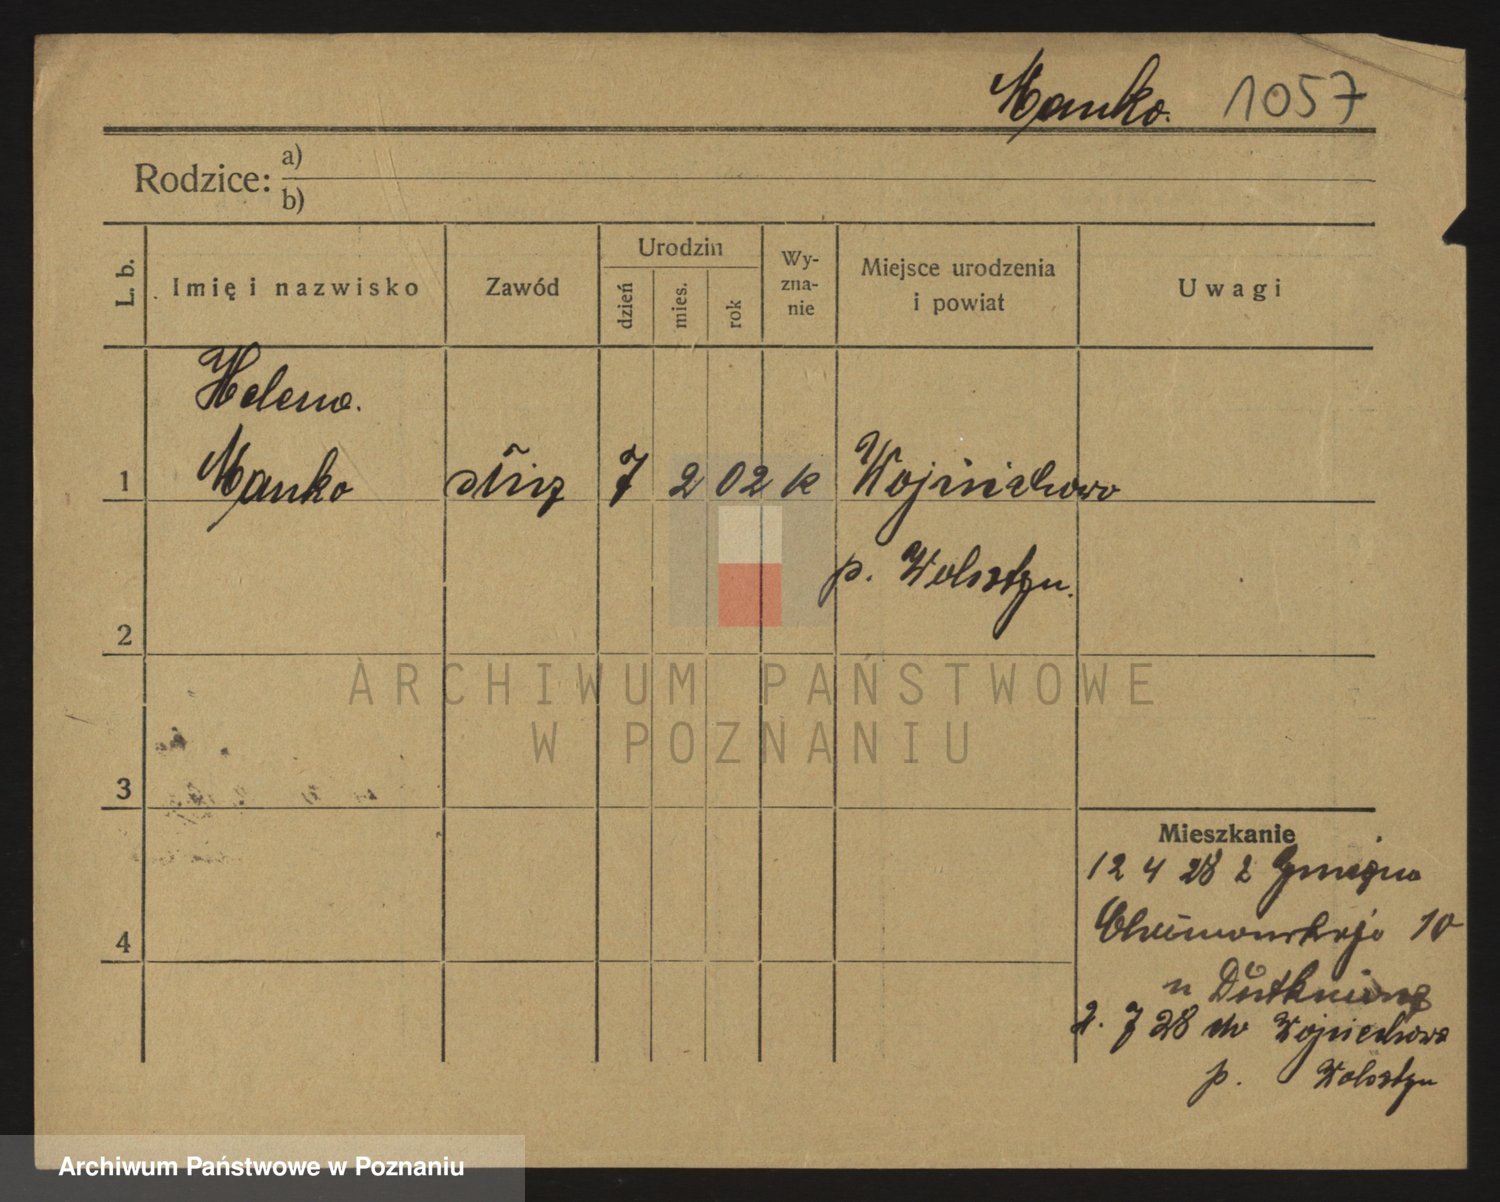 Manko. 1057
Rodzice: a)
b)
L. b.
Imię i nazwisko
Zawód
Urodzin
dzień
mies.
rok
Wy-
zna-
nie
Miejsce urodzenia
i powiat
Uwagi
Helena.
1 Manko służ 7 2 02 k Wojciechowo
p. Wolsztyn.
2
3
4
Mieszkanie
12 4 28 z Gniezna
10
u
2. 7 28 do Wojciechowa
p. Wolsztyn
ARCHIWUM PAŃSTWOWE
W POZNANIU
Archiwum Państwowe w Poznaniu